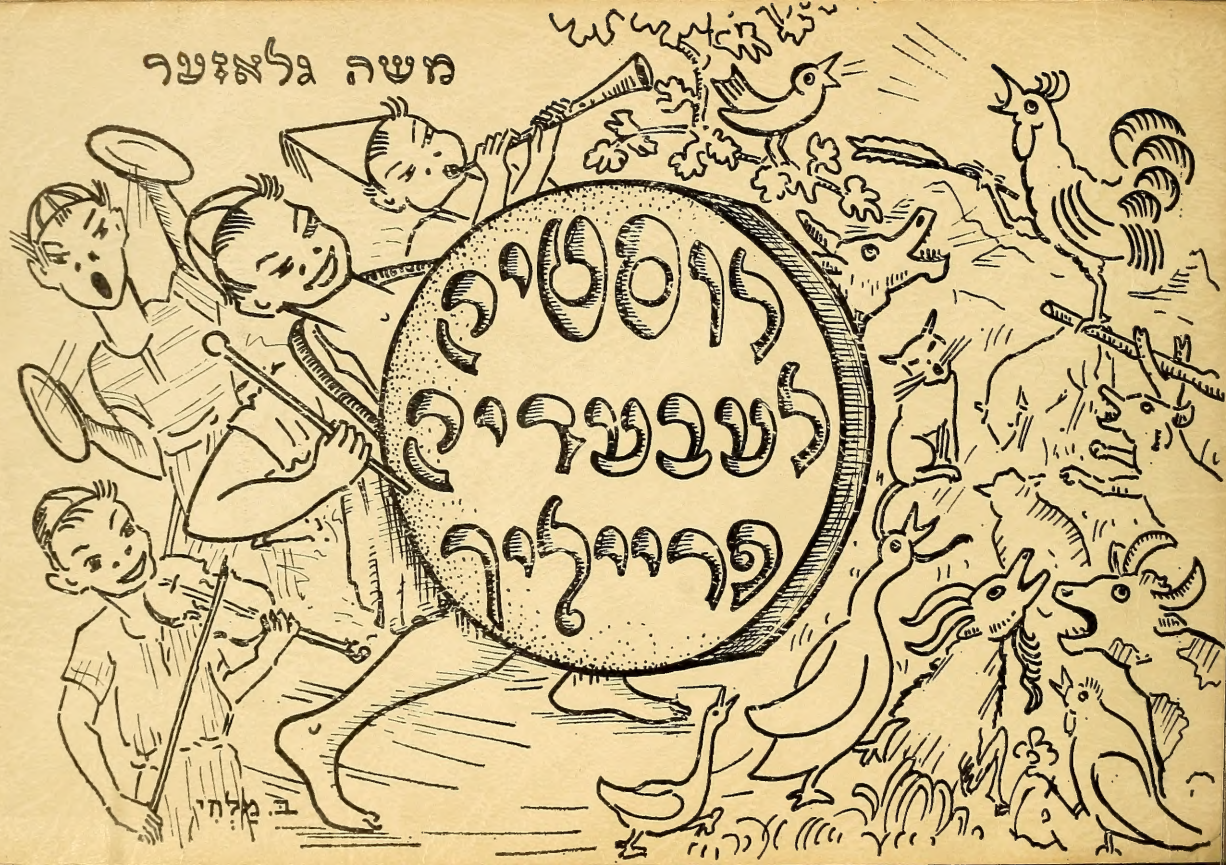 משה גלאזער
לוסטיק
לעבעדיק
פרייליך
ב. מַלְחִי